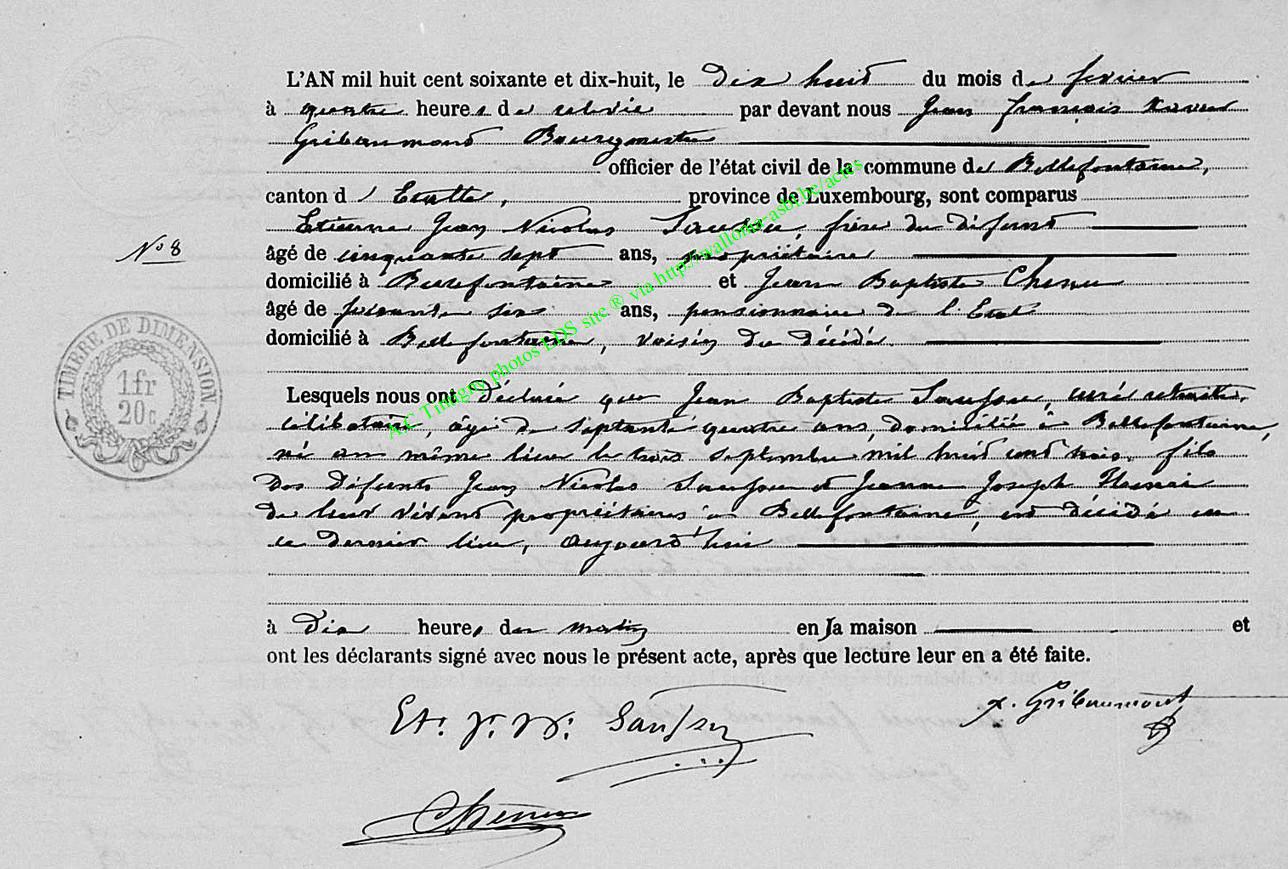 L'AN mil huit cent soixante et dix-huit, le dix huit du mois de fevrier
à quatre heures de relevée par devant nous Jean françois Xavier
Gribaumont Bourgmestre
officier de l'état civil de la commune de Bellefontaine,
canton d'Etalle, province de Luxembourg, sont comparus
Etienne Jean Nicolas Saussu, frère du défunt
N° 8
âgé de cinquante sept ans, propriétaire
domicilié à Bellefontaine et Jean Baptiste Chenu
âgé de ans, pensionnaire de l'Etat
domicilié à Bellefontaine, voisin du décédé
TIMBRE DE DIMENSION
1 fr
20 c.
Lesquels nous ont déclaré que Jean Baptiste curé retraité,
célibataire, âgé de septante quatre ans, domicilié à Bellefontaine,
né au même lieu le trois septembre mil huit cent trois, fils
des défunts Jean Nicolas et Jeanne Joseph
de leur vivant propriétaires à Bellefontaine, est décédé en
ce dernier lieu, aujourd'hui
à dix heures du matin en sa maison et
ont les déclarants signé avec nous le présent acte, après que lecture leur en a été faite.
Et. J. N. x. Gribaumont
Chenu
AC Tintigny photos LDS site ® via http://wallonia-asbl.be/actes